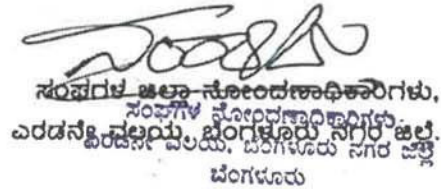 ಸಂಘಗಳ ಜಿಲ್ಲಾ ನೋಂದಣಾಧಿಕಾರಿಗಳು,
ಸಂಘಗಳ ನೋಂದಣಾಧಿಕಾರಿಗಳು,
ಎರಡನೇ ವಲಯ, ಬೆಂಗಳೂರು ನಗರ ಜಿಲ್ಲೆ.
ಎರಡನೇ ವಲಯ, ಬೆಂಗಳೂರು ನಗರ ಜಿಲ್ಲೆ
ಬೆಂಗಳೂರು